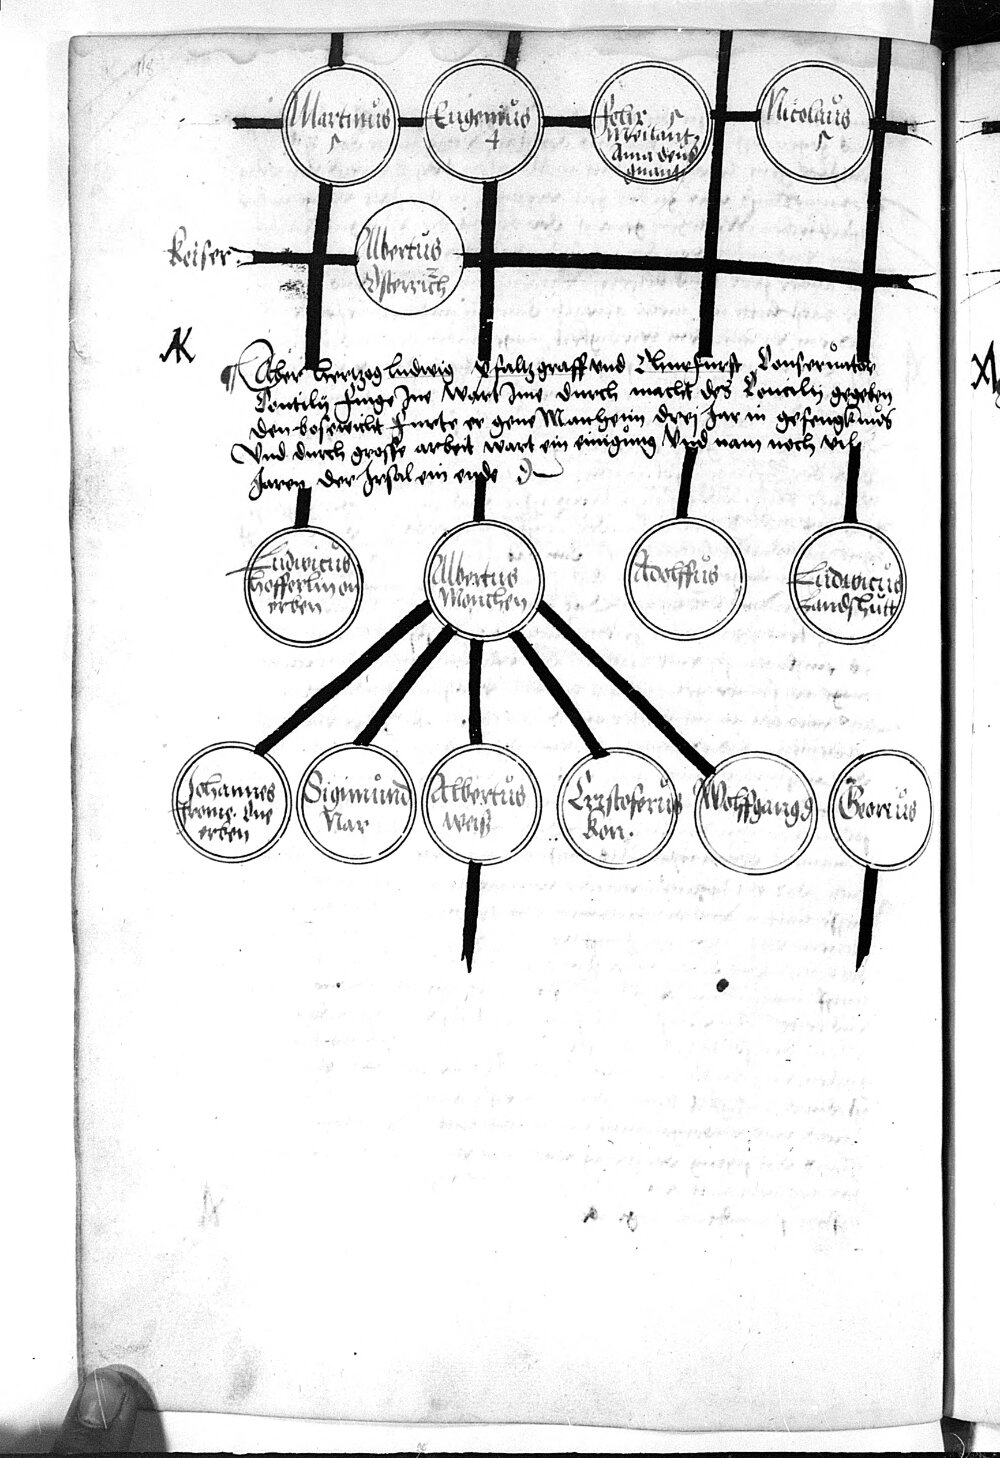 118
Martinus
5
Eugenius
4
Felix 5
Amadeus
quant
Nicolaus
5
Keiser
Albertus
Osterrich
Aber Hertzog Ludwig Pfaltzgraff und Churfurst Conservator
Concilij finge Jne wart Jme durch macht des Concilij gegeben
den bosewicht furte er gene Manheim drej Jar in gefengknus
Und durch grosse arbeit wart ein einigung Und nam noch vil
Jaren der Irsal ein ende
Ludwicus
hofferlin on
erben
Albertus
Monchen
Adolffus
Ludwicus
Landshutt
Johannes
frome One
erben
Sigimund
Nar
Albertus
Weiß
Crystoferus
Kon.
Wolffgangg
Georius